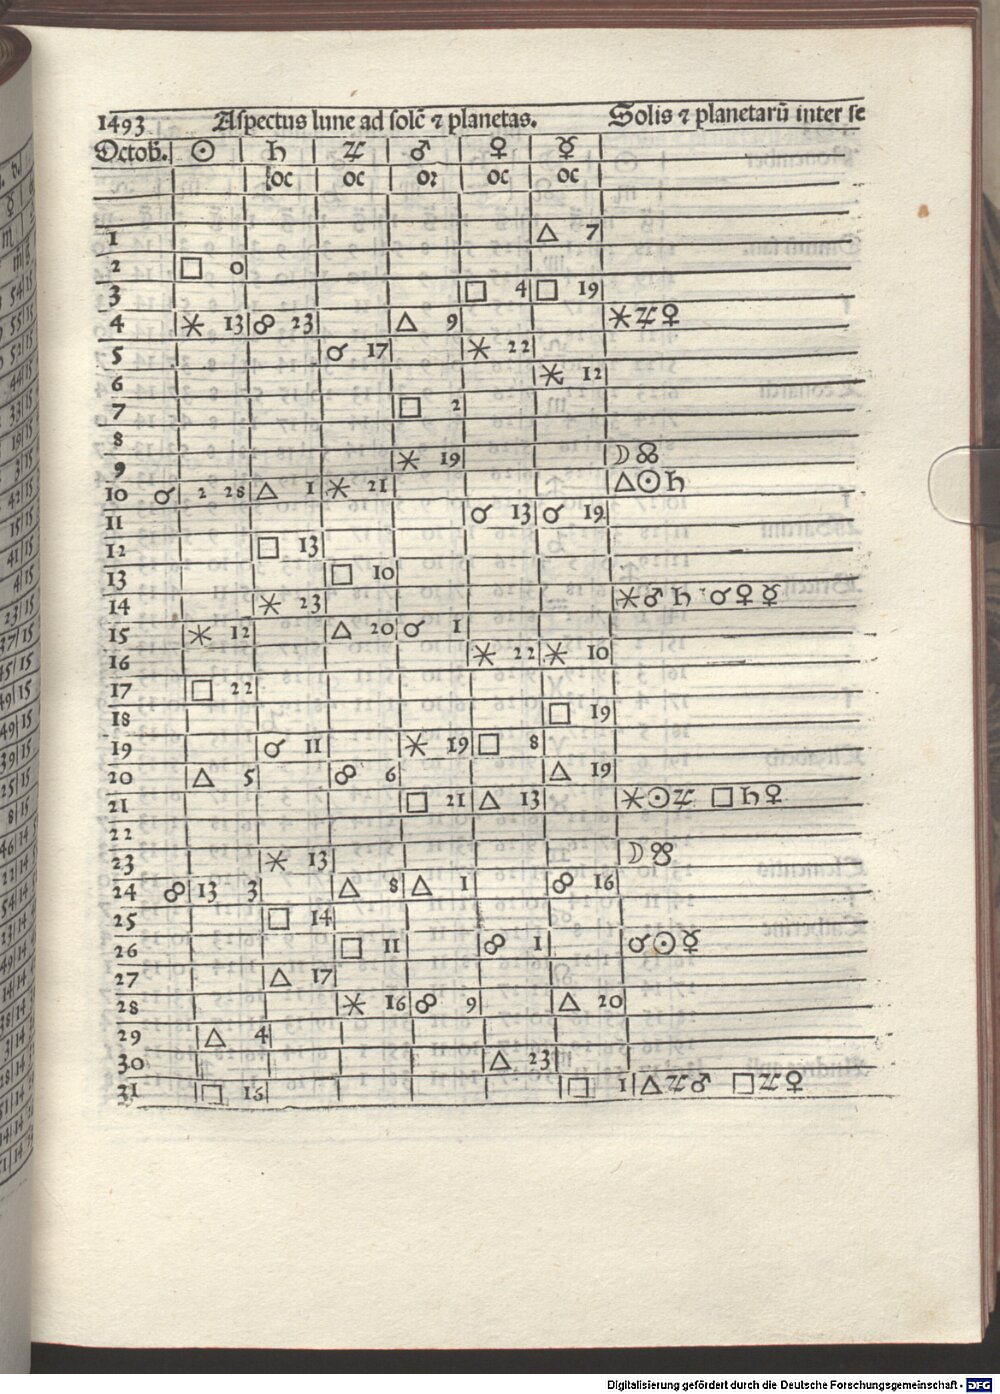 1493 Aspectus lune ad solē ⁊ planetas. Solis ⁊ planetarū inter se
Octob. ☉ ♄ ♃ ♂ ♀ ☿
oc oc oꝛ oc oc
1 △ 7
2 □ 0
3 □ 4 □ 19
4 ⚹ 13 ☍ 23 △ 9 ⚹ ♃ ♀
5 ☌ 17 ⚹ 22
6 ⚹ 12
7 □ 2
8
9 ⚹ 19 ☽ ☊
10 ☌ 2 28 △ 1 ⚹ 21 △ ☉ ♄
11 ☌ 13 ☌ 19
12 □ 13
13 □ 10
14 ⚹ 23 ⚹ ♂ ♄ ☌ ♀ ☿
15 ⚹ 12 △ 20 ☌ 1
16 ⚹ 22 ⚹ 10
17 □ 22
18 □ 19
19 ☌ 11 ⚹ 19 □ 8
20 △ 5 ☍ 6 △ 19
21 □ 21 △ 13 ⚹ ☉ ♃ □ ♄ ♀
22
23 ⚹ 13 ☽ ☋
24 ☍ 13 3 △ 8 △ 1 ☍ 16
25 □ 14
26 □ 11 ☍ 1 ☌ ☉ ☿
27 △ 17
28 ⚹ 16 ☍ 9 △ 20
29 △ 4
30 △ 23
31 □ 15 □ 1 △ ♃ ♂ □ ♃ ♀
Digitalisierung gefördert durch die Deutsche Forschungsgemeinschaft - DFG